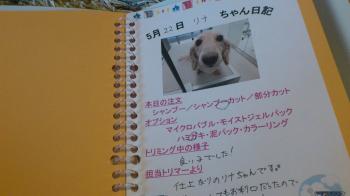 5月22日 リナ ちゃん日記
本日の注文
シャンプー/シャンプーカット/部分カット
オプション
マイクロバブル・モイストジェルパック
ハミガキ・泥パック・カラーリング
トリミング中の様子
良い子でした!
担当トリマーより
仕上がりのリナちゃんです
とてもお利口だったので